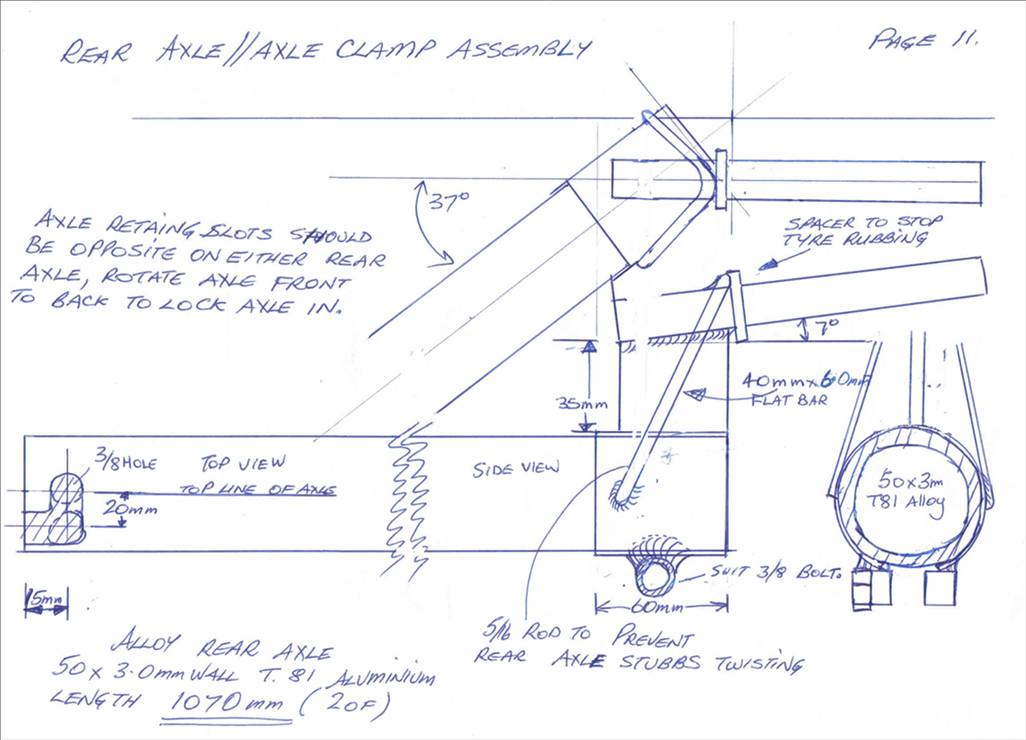 REAR AXLE//AXLE CLAMP ASSEMBLY
PAGE 11.
37°
AXLE RETAING SLOTS SHOULD
BE OPPOSITE ON EITHER REAR
AXLE, ROTATE AXLE FRONT
TO BACK TO LOCK AXLE IN.
SPACER TO STOP
TYRE RUBBING
7°
35mm
40mm x 6.0mm
FLAT BAR
3/8 HOLE
TOP VIEW
TOP LINE OF AXLE
20mm
SIDE VIEW
50x3m
T81 Alloy
SUIT 3/8 BOLT.
15mm
60mm
5/16 ROD TO PREVENT
REAR AXLE STUBBS TWISTING
ALLOY REAR AXLE
50 x 3.0mm WALL T.81 ALUMINIUM
LENGTH 1070mm (2 OF)